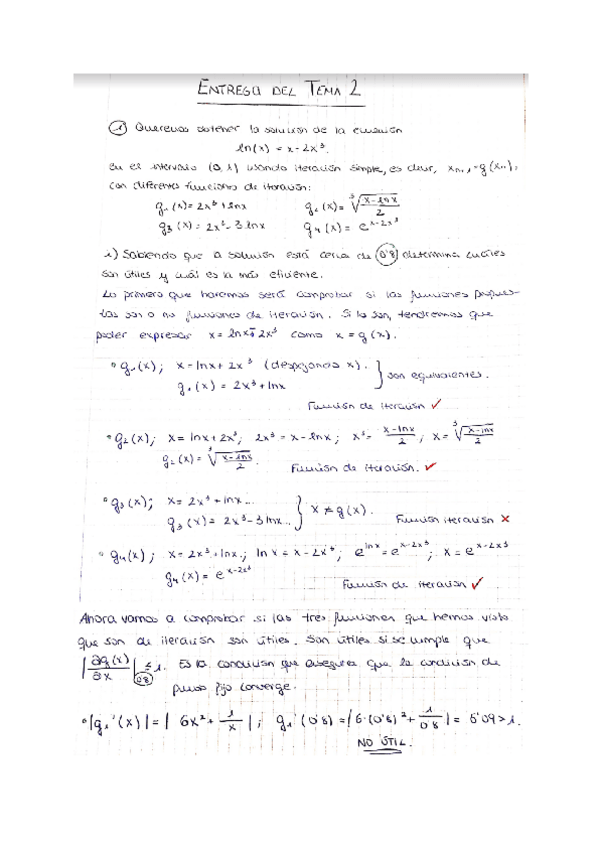 ENTREGA DEL TEMA 2
① Queremos obtener la solución de la ecuación
ln(x) = x-2x³.
en el intervalo (0,1) usando iteración simple, es decir, xₙ₊₁ = g(xₙ),
con diferentes funciones de iteración:
g₁(x) = 2x³ + lnx g₂(x) = ∛((x-lnx)/2)
g₃(x) = 2x³-3lnx g₄(x) = e^(x-2x³)
i) Sabiendo que la solución está cerca de 0'8, determina cuáles
son útiles y cuál es la más eficiente.
Lo primero que haremos será comprobar si las funciones propues-
tas son o no funciones de iteración. Si lo son, tendremos que
poder expresar x = lnx+2x³ como x = g(x).
° g₁(x); x = lnx + 2x³ (despejando x). } son equivalentes.
g₁(x) = 2x³ + lnx
Función de iteración ✓
° g₂(x); x = lnx + 2x³; 2x³ = x - lnx; x³ = (x-lnx)/2; x = ∛((x-lnx)/2)
g₂(x) = ∛((x-lnx)/2). Función de iteración. ✓
° g₃(x); x = 2x³ + lnx... } x ≠ g(x).
g₃(x) = 2x³-3lnx... Función iteración ✗
° g₄(x); x = 2x³ + lnx; lnx = x-2x³; e^(lnx) = e^(x-2x³); x = e^(x-2x³)
g₄(x) = e^(x-2x³) Función de iteración ✓
Ahora vamos a comprobar si las tres funciones que hemos visto
que son de iteración son útiles. Son útiles si se cumple que
|∂g(x)/∂x|₀'₈ ≤ 1. Es la condición que asegura que la condición de
punto fijo converge.
° |g₁'(x)| = |6x² + 1/x|; g₁'(0'8) = |6·(0'8)² + 1/0'8| = 5'09 > 1.
NO ÚTIL.